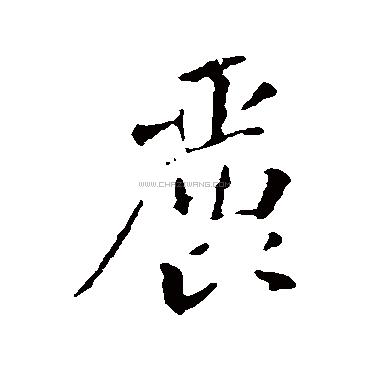 麗
WWW.CHAZIWANG.COM